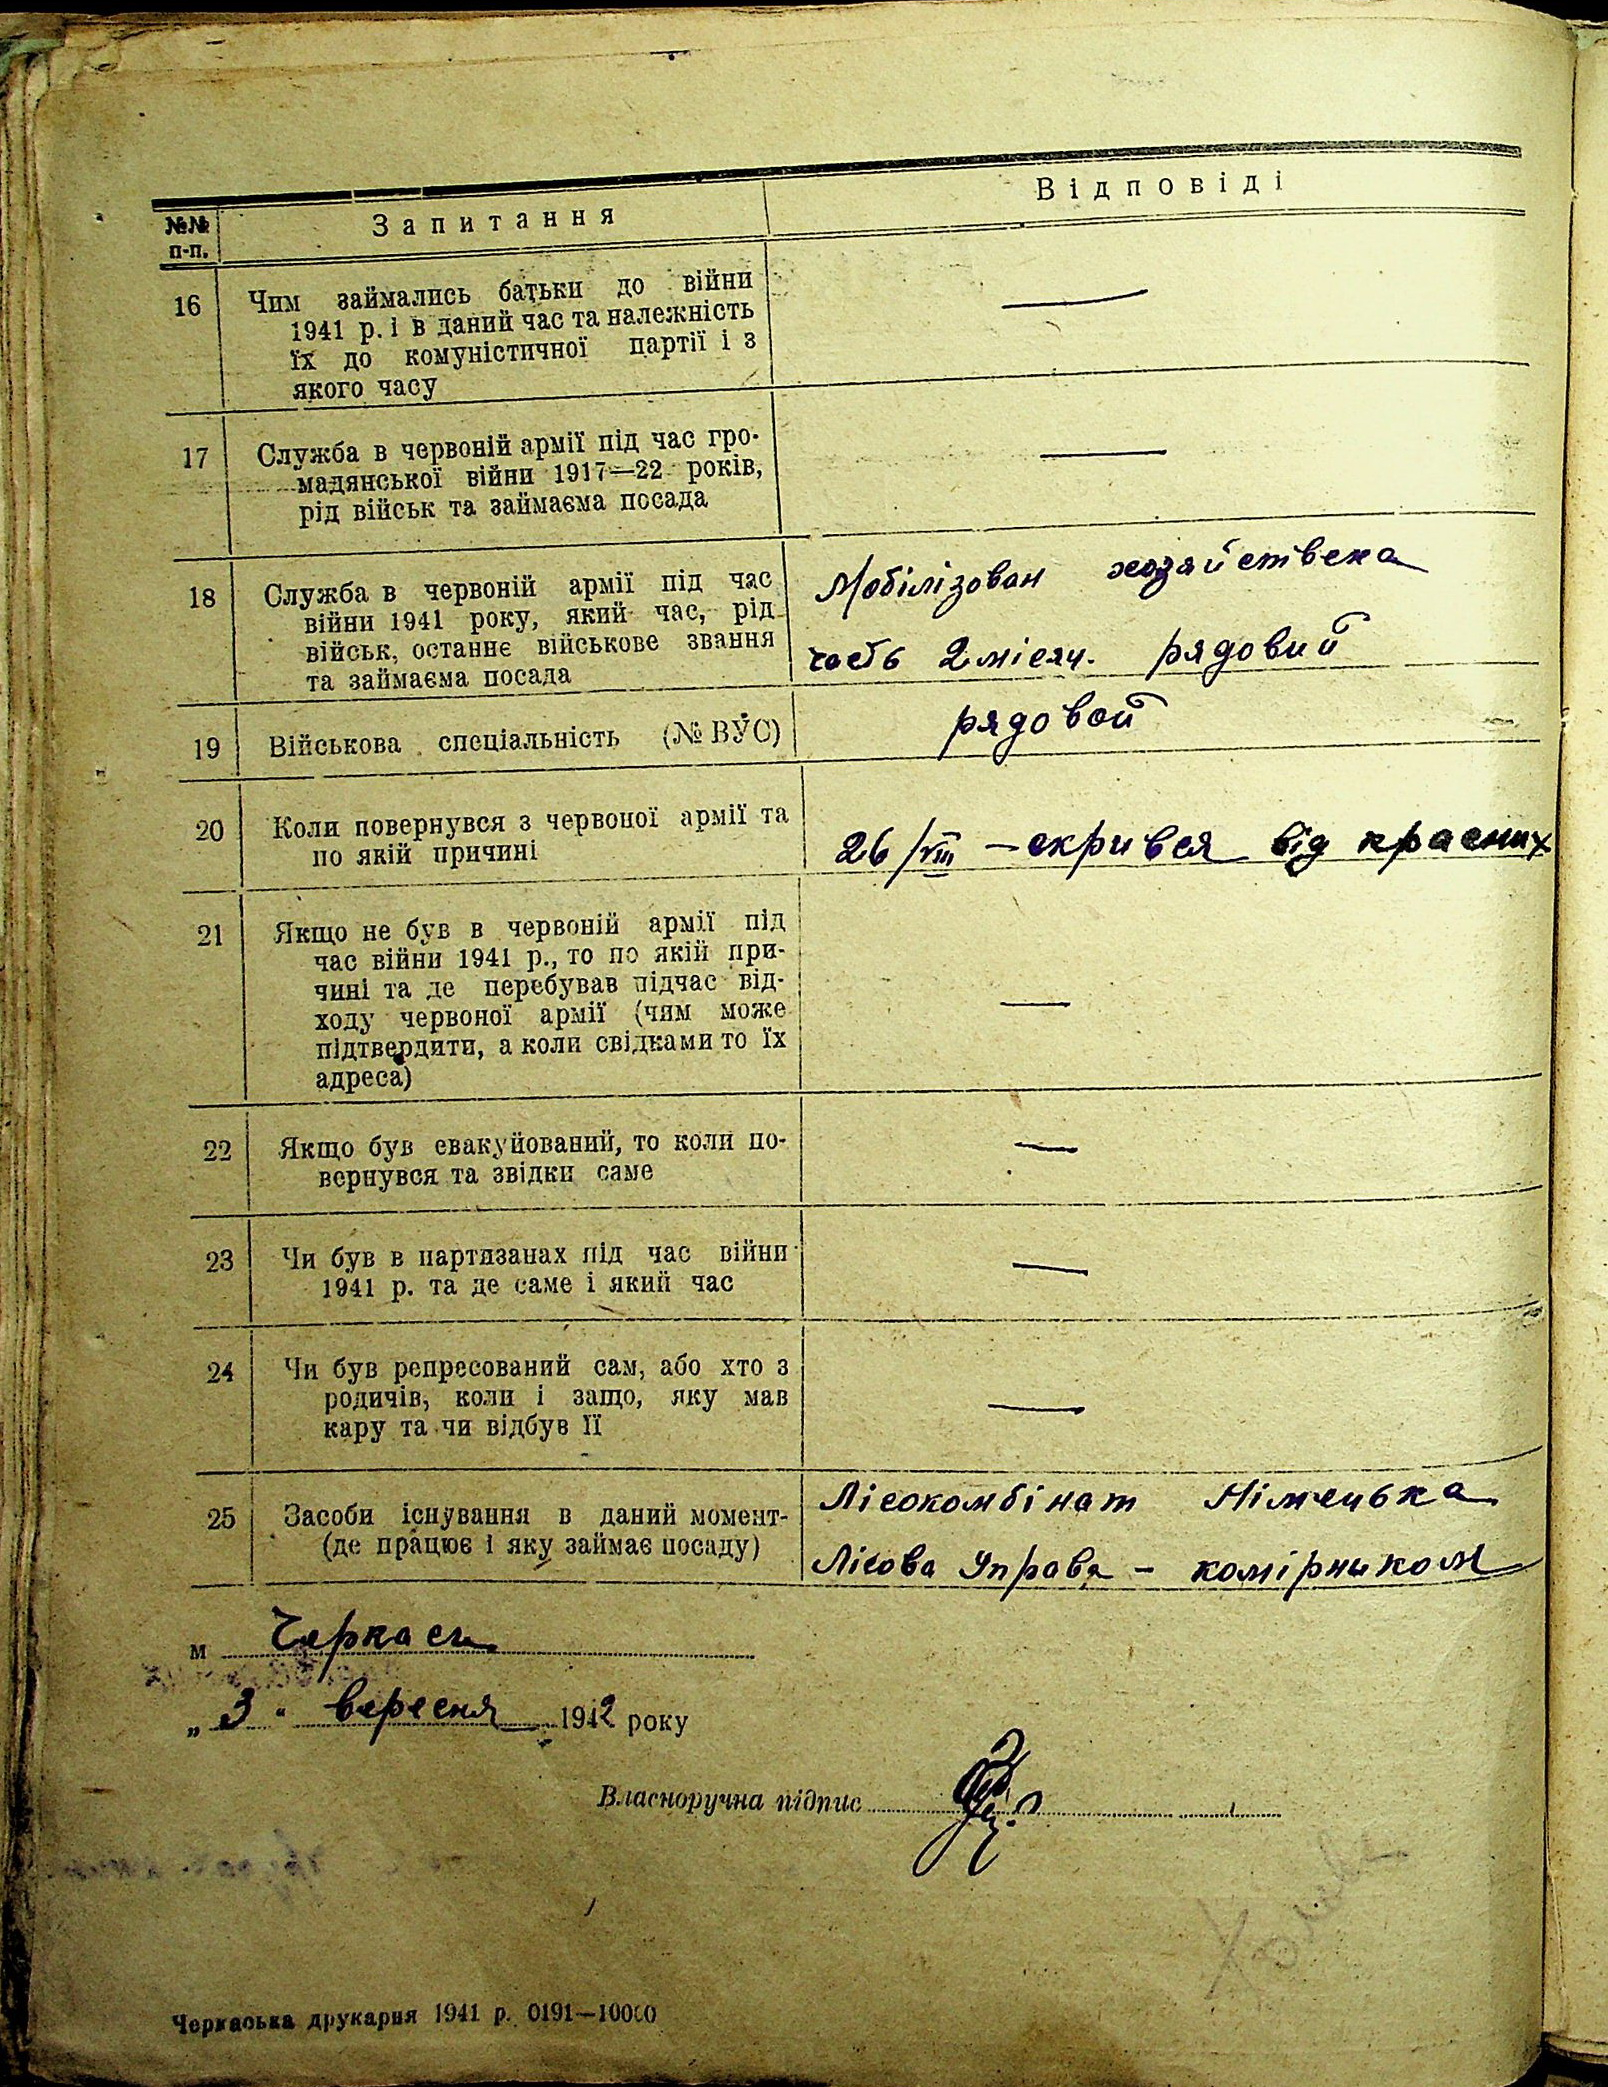 №№ п-п.
Запитання
Відповіді
16
Чим займались батьки до війни
1941 р. і в даний час та належність
їх до комуністичної партії і з
якого часу
—
17
Служба в червоній армії під час гро-
мадянської війни 1917—22 років,
рід військ та займаєма посада
—
18
Служба в червоній армії під час
війни 1941 року, який час, рід
військ, останнє військове звання
та займаєма посада
Мобілізован хозяйствена
часть 2 місяч. рядовий
19
Військова спеціальність (№ ВУС)
рядовой
20
Коли повернувся з червоної армії та
по якій причині
26/VIII — скрився від красних
21
Якщо не був в червоній армії під
час війни 1941 р., то по якій при-
чині та де перебував підчас від-
ходу червоної армії (чим може
підтвердити, а коли свідками то їх
адреса)
—
22
Якщо був евакуйований, то коли по-
вернувся та звідки саме
—
23
Чи був в партизанах під час війни
1941 р. та де саме і який час
—
24
Чи був репресований сам, або хто з
родичів, коли і защо, яку мав
кару та чи відбув її
—
25
Засоби існування в даний момент-
(де працює і яку займає посаду)
Лісокомбінат Німецька
Лісова Управа - комірником
м Черкаси
„3" вересня 1942 року
Власноручна підпис
Черкаська друкарня 1941 р. 0191—10000